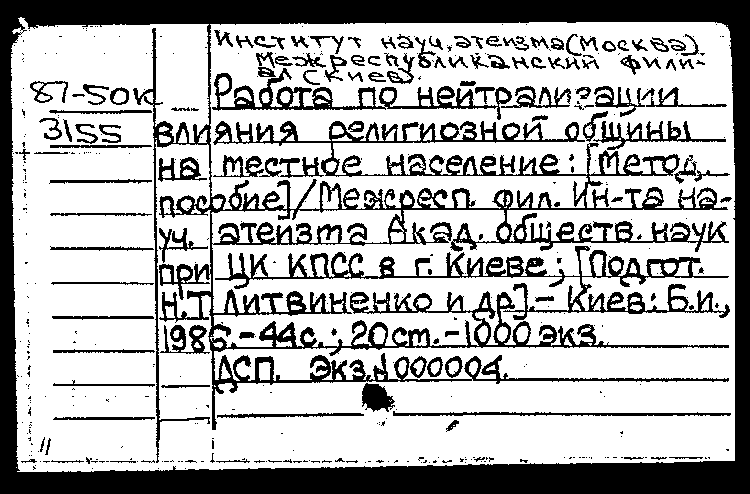 Институт науч. атеизма (Москва).
Межреспубликанский фили-
ал (Киев).
87-50к Работа по нейтрализации
3155 влияния религиозной общины
на местное население: [Метод.
пособие]/Межресп. фил. Ин-та на-
уч. атеизма Акад. обществ. наук
при ЦК КПСС в г. Киеве; [Подгот.
Н.Т. Литвиненко и др].- Киев: Б.и.,
1986.-44с.; 20 ст.-1000 экз.
ДСП. Экз.№000004.
11